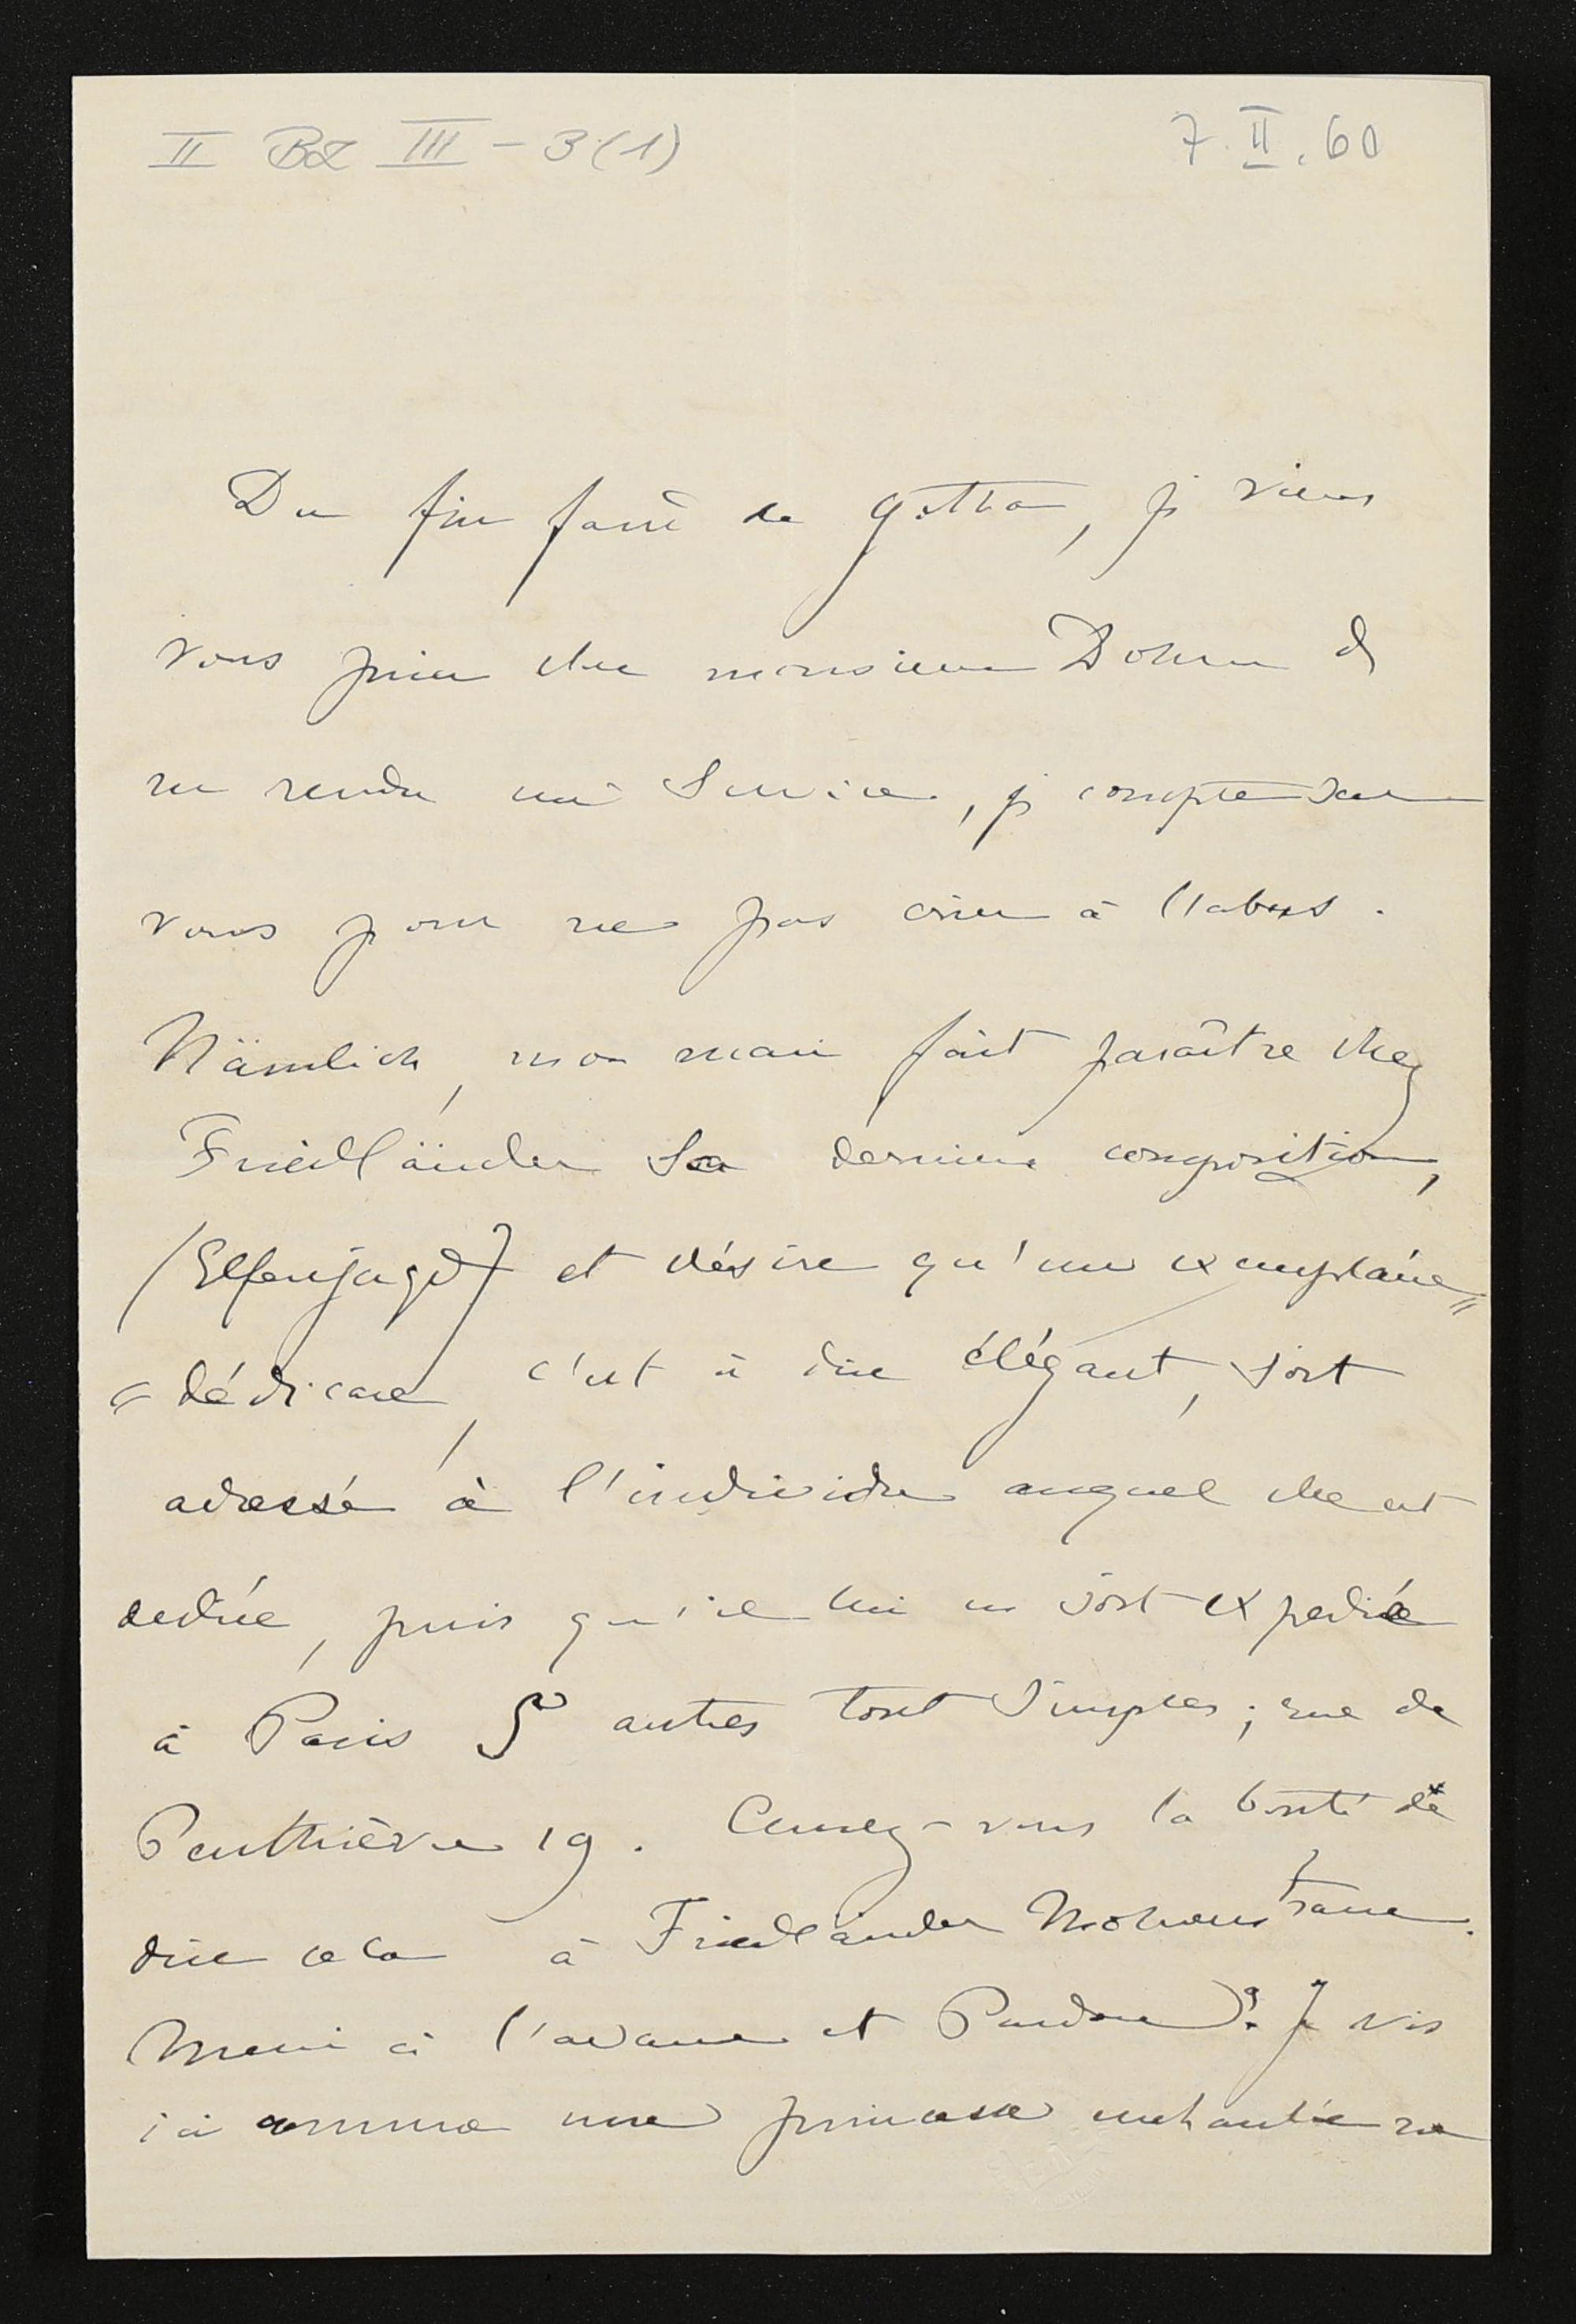 II BL III – 3 (1)
7. II. 60
Du fin fond de Gotha, je viens
vous prier cher monsieur Dohm de
me rendre un service, je compte sur
vous pour ne pas crier à l'abus.
Nämlich, mon mari fait paraître chez
Friedländer sa dernière composition,
(Elfenjagd) et désire qu'un exemplaire=
=dédicace, c'est à dire élégant, soit
adressé à l'individu auquel elle est
dediée, puis qu'il lui en soit expedié
à Paris 5 autres tout simples; rue de
Penthièvre 19. Aurez-vous la bonté de
dire cela à Friedländer
Merci à l'avance et Pardon? Je vis
ici comme une princesse enchantée ne